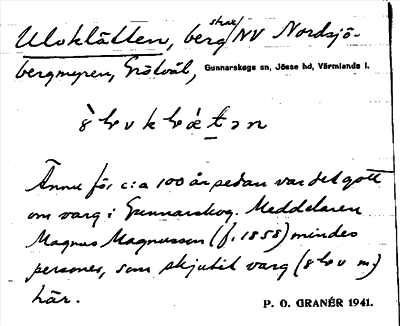 Uloklätten, berg strax NV Nordsjö-
bergmyren, Grötvål, Gunnarskogs sn, Jösse hd, Värmlands l.
Ännu för c:a 100 år sedan var det gott
om varg i Gunnarskog. Meddelaren
Magnus Magnusson (f. 1858) mindes
personer, som skjutit varg m.)
här.
P. O. GRANÉR 1941.